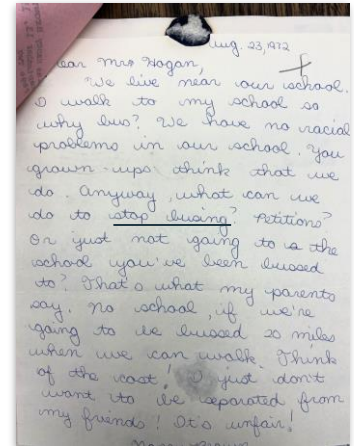 Aug. 23, 1972
ear Mrs Hogan,
We live near our school.
I walk to my school so
why bus? We have no racial
problems in our school. You
grown-ups think that we
do. Anyway, what can we
do to stop busing? Petitions?
Or just not going to the
school you've been bussed
to? That's what my parents
say. No school, if we're
going to be bussed 20 miles
when we can walk. Think
of the cost! I just don't
want to be separated from
my friends! It's unfair!